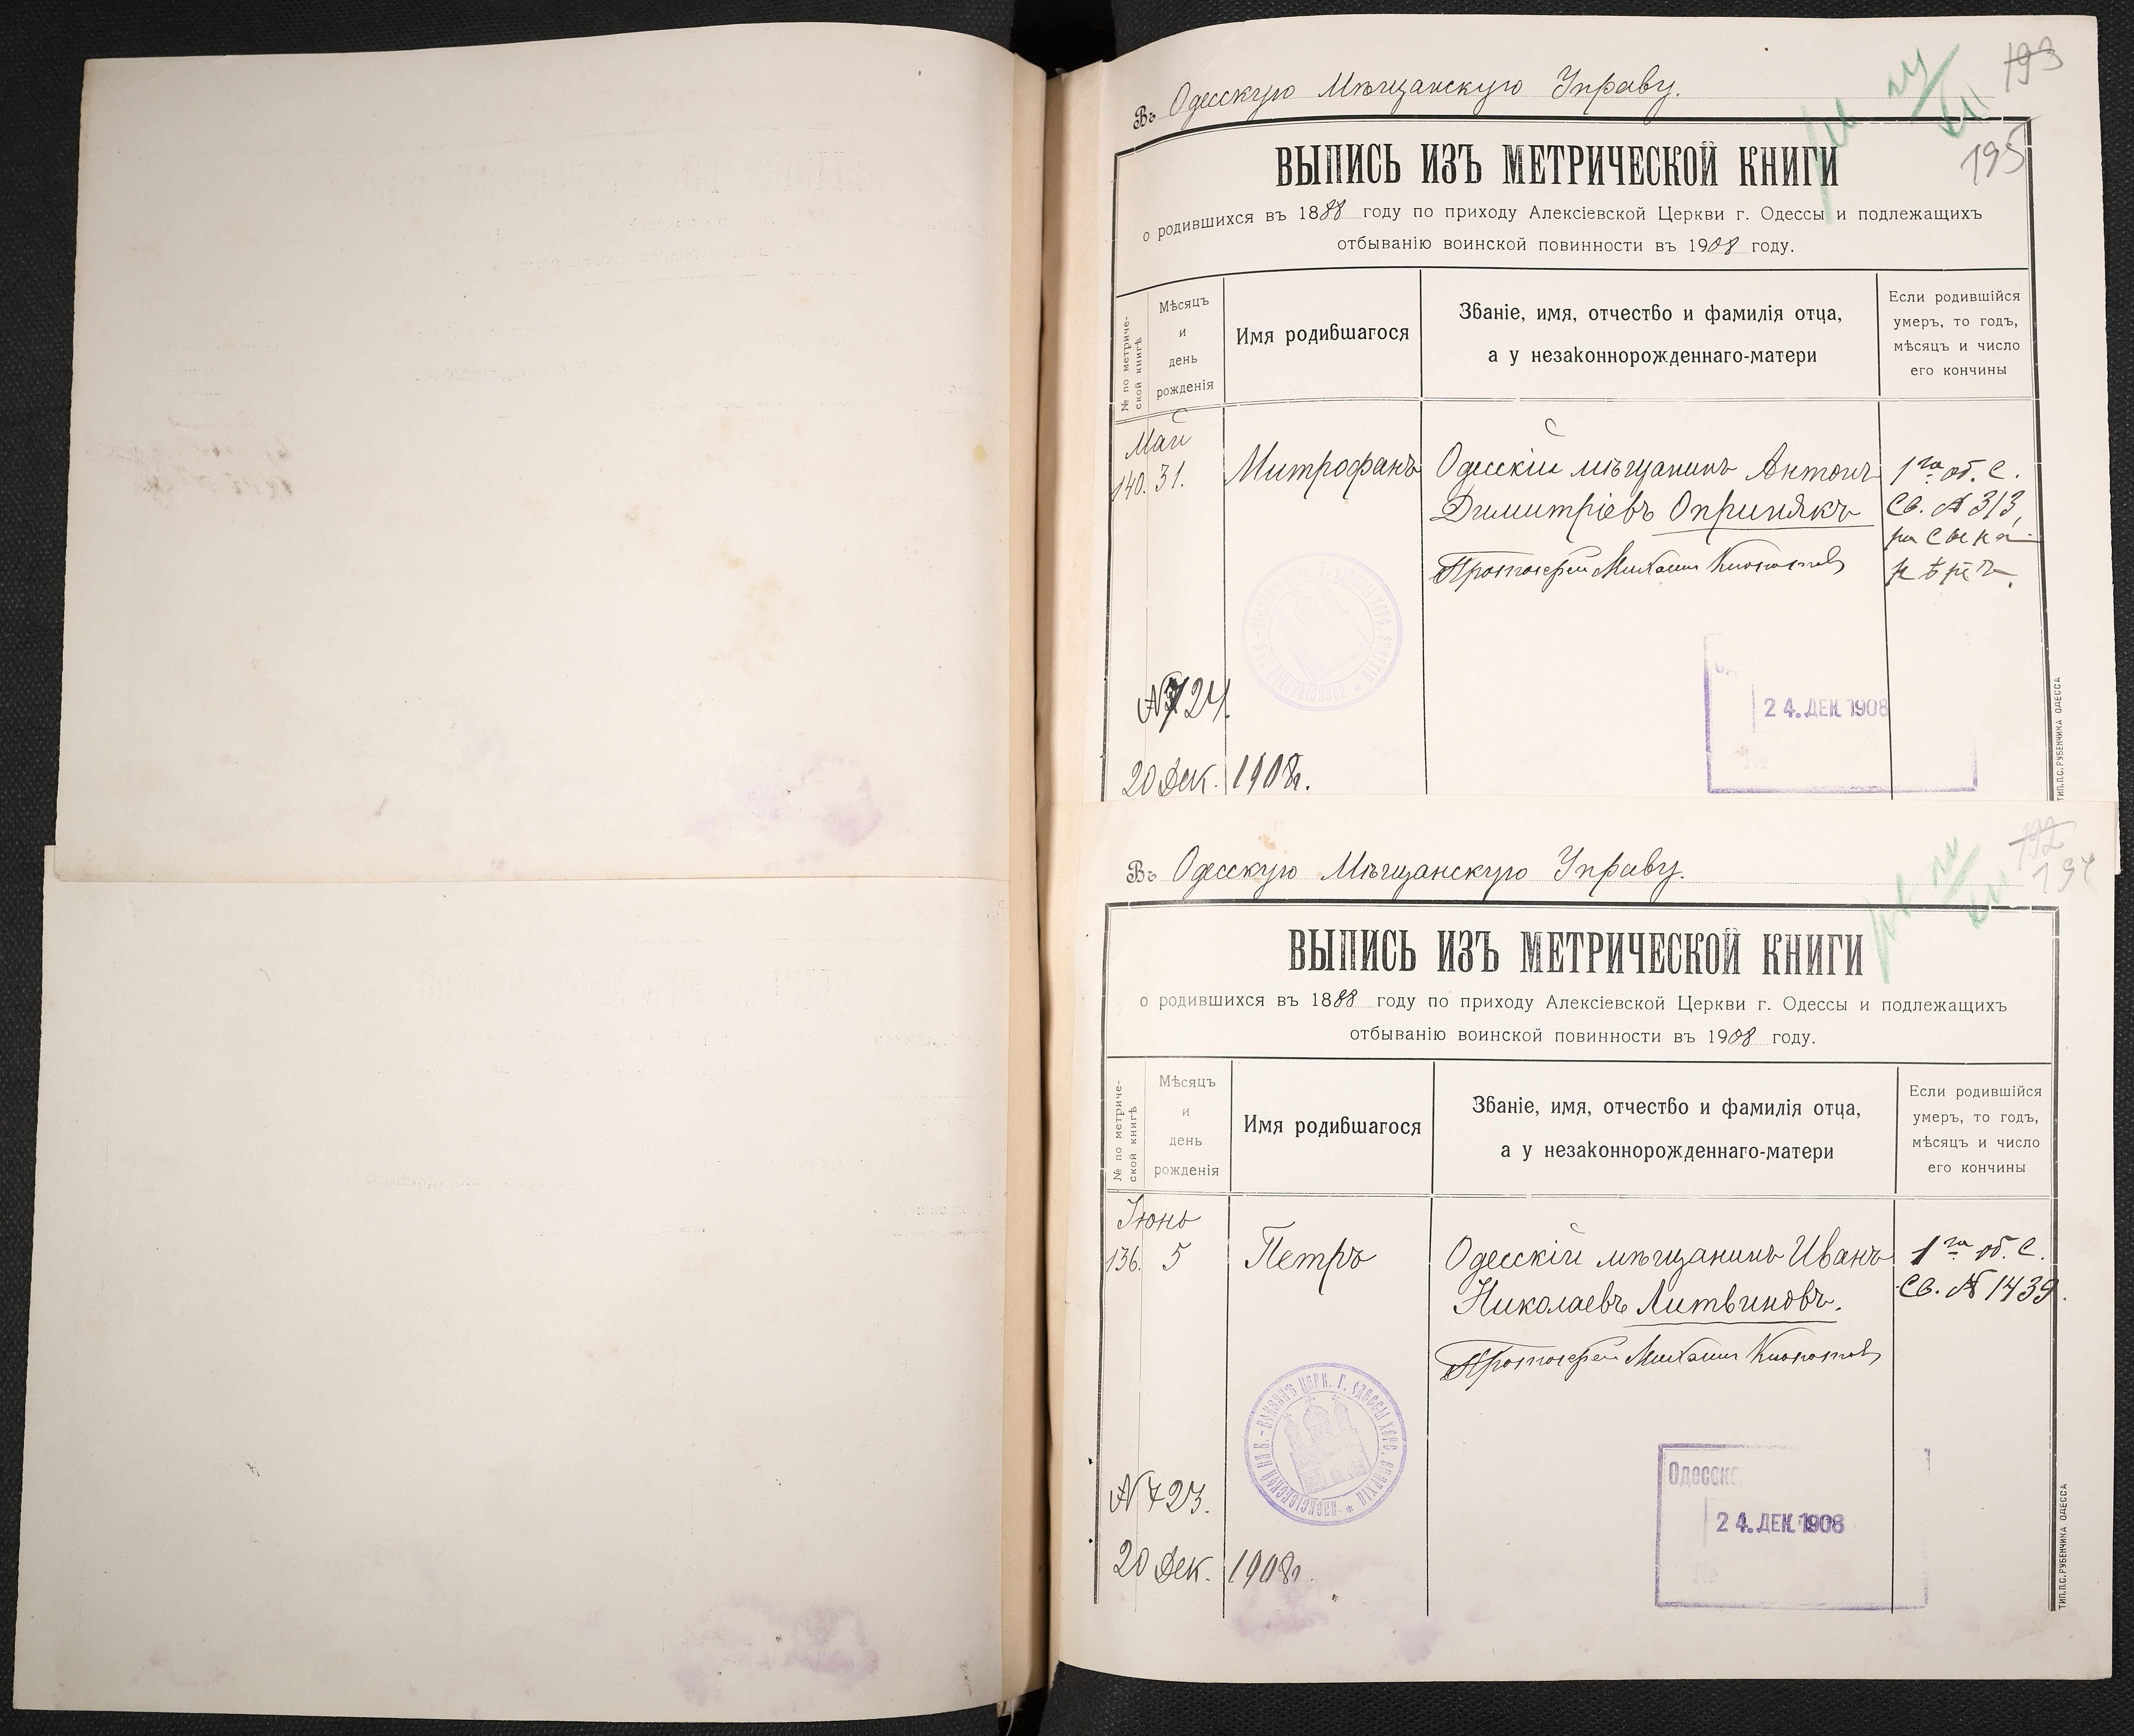 193
195
Въ Одесскую Мѣщанскую Управу.
ВЫПИСЬ ИЗЪ МЕТРИЧЕСКОЙ КНИГИ
о родившихся въ 1888 году по приходу Алексіевской Церкви г. Одессы и подлежащихъ
отбыванію воинской повинности въ 1908 году.
№ по метриче-
ской книгѣ
Мѣсяцъ
и
день
рожденія
Имя родившагося
Званіе, имя, отчество и фамилія отца,
а у незаконнорожденнаго-матери
Если родившійся
умеръ, то годъ,
мѣсяцъ и число
его кончины
Май
140. 31.
Митрофанъ
Одесскій мѣщанинъ Антонъ
Димитріевъ Опринякъ
Протоіерей Михаилъ
1го об. с.
Св. № 313,
№ 724.
20 Дек. 1908 г.
24. ДЕК. 1908
ТИП. П.С. РУБЕНЧИКА ОДЕССА
192
194
Въ Одесскую Мѣщанскую Управу.
ВЫПИСЬ ИЗЪ МЕТРИЧЕСКОЙ КНИГИ
о родившихся въ 1888 году по приходу Алексіевской Церкви г. Одессы и подлежащихъ
отбыванію воинской повинности въ 1908 году.
№ по метриче-
ской книгѣ
Мѣсяцъ
и
день
рожденія
Имя родившагося
Званіе, имя, отчество и фамилія отца,
а у незаконнорожденнаго-матери
Если родившійся
умеръ, то годъ,
мѣсяцъ и число
его кончины
Іюнь
136. 5
Петръ
Одесскій мѣщанинъ Иванъ
Николаевъ Литвиновъ.
Протоіерей Михаилъ
1го об. с.
Св. № 1439.
№ 723.
20 Дек. 1908 г.
24. ДЕК. 1908
ТИП. П.С. РУБЕНЧИКА ОДЕССА